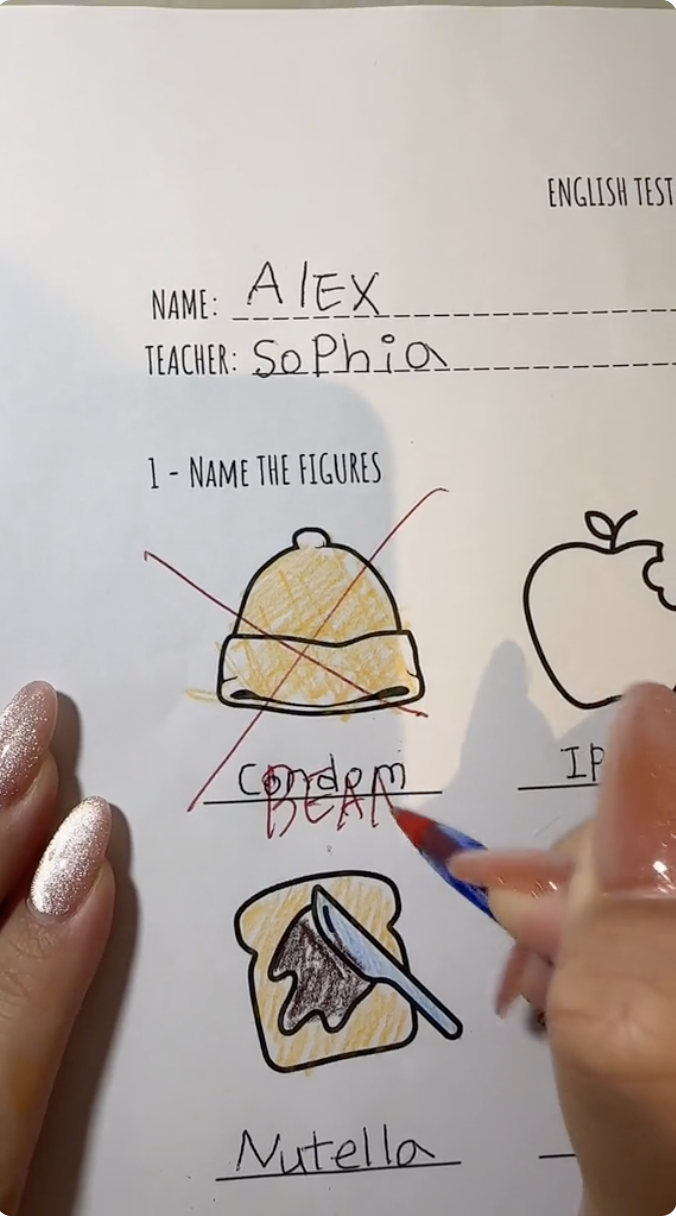 ENGLISH TEST
NAME: AlEX
TEACHER: SoPhia
1 - NAME THE FIGURES
Condom
BEAN
IP
Nutella